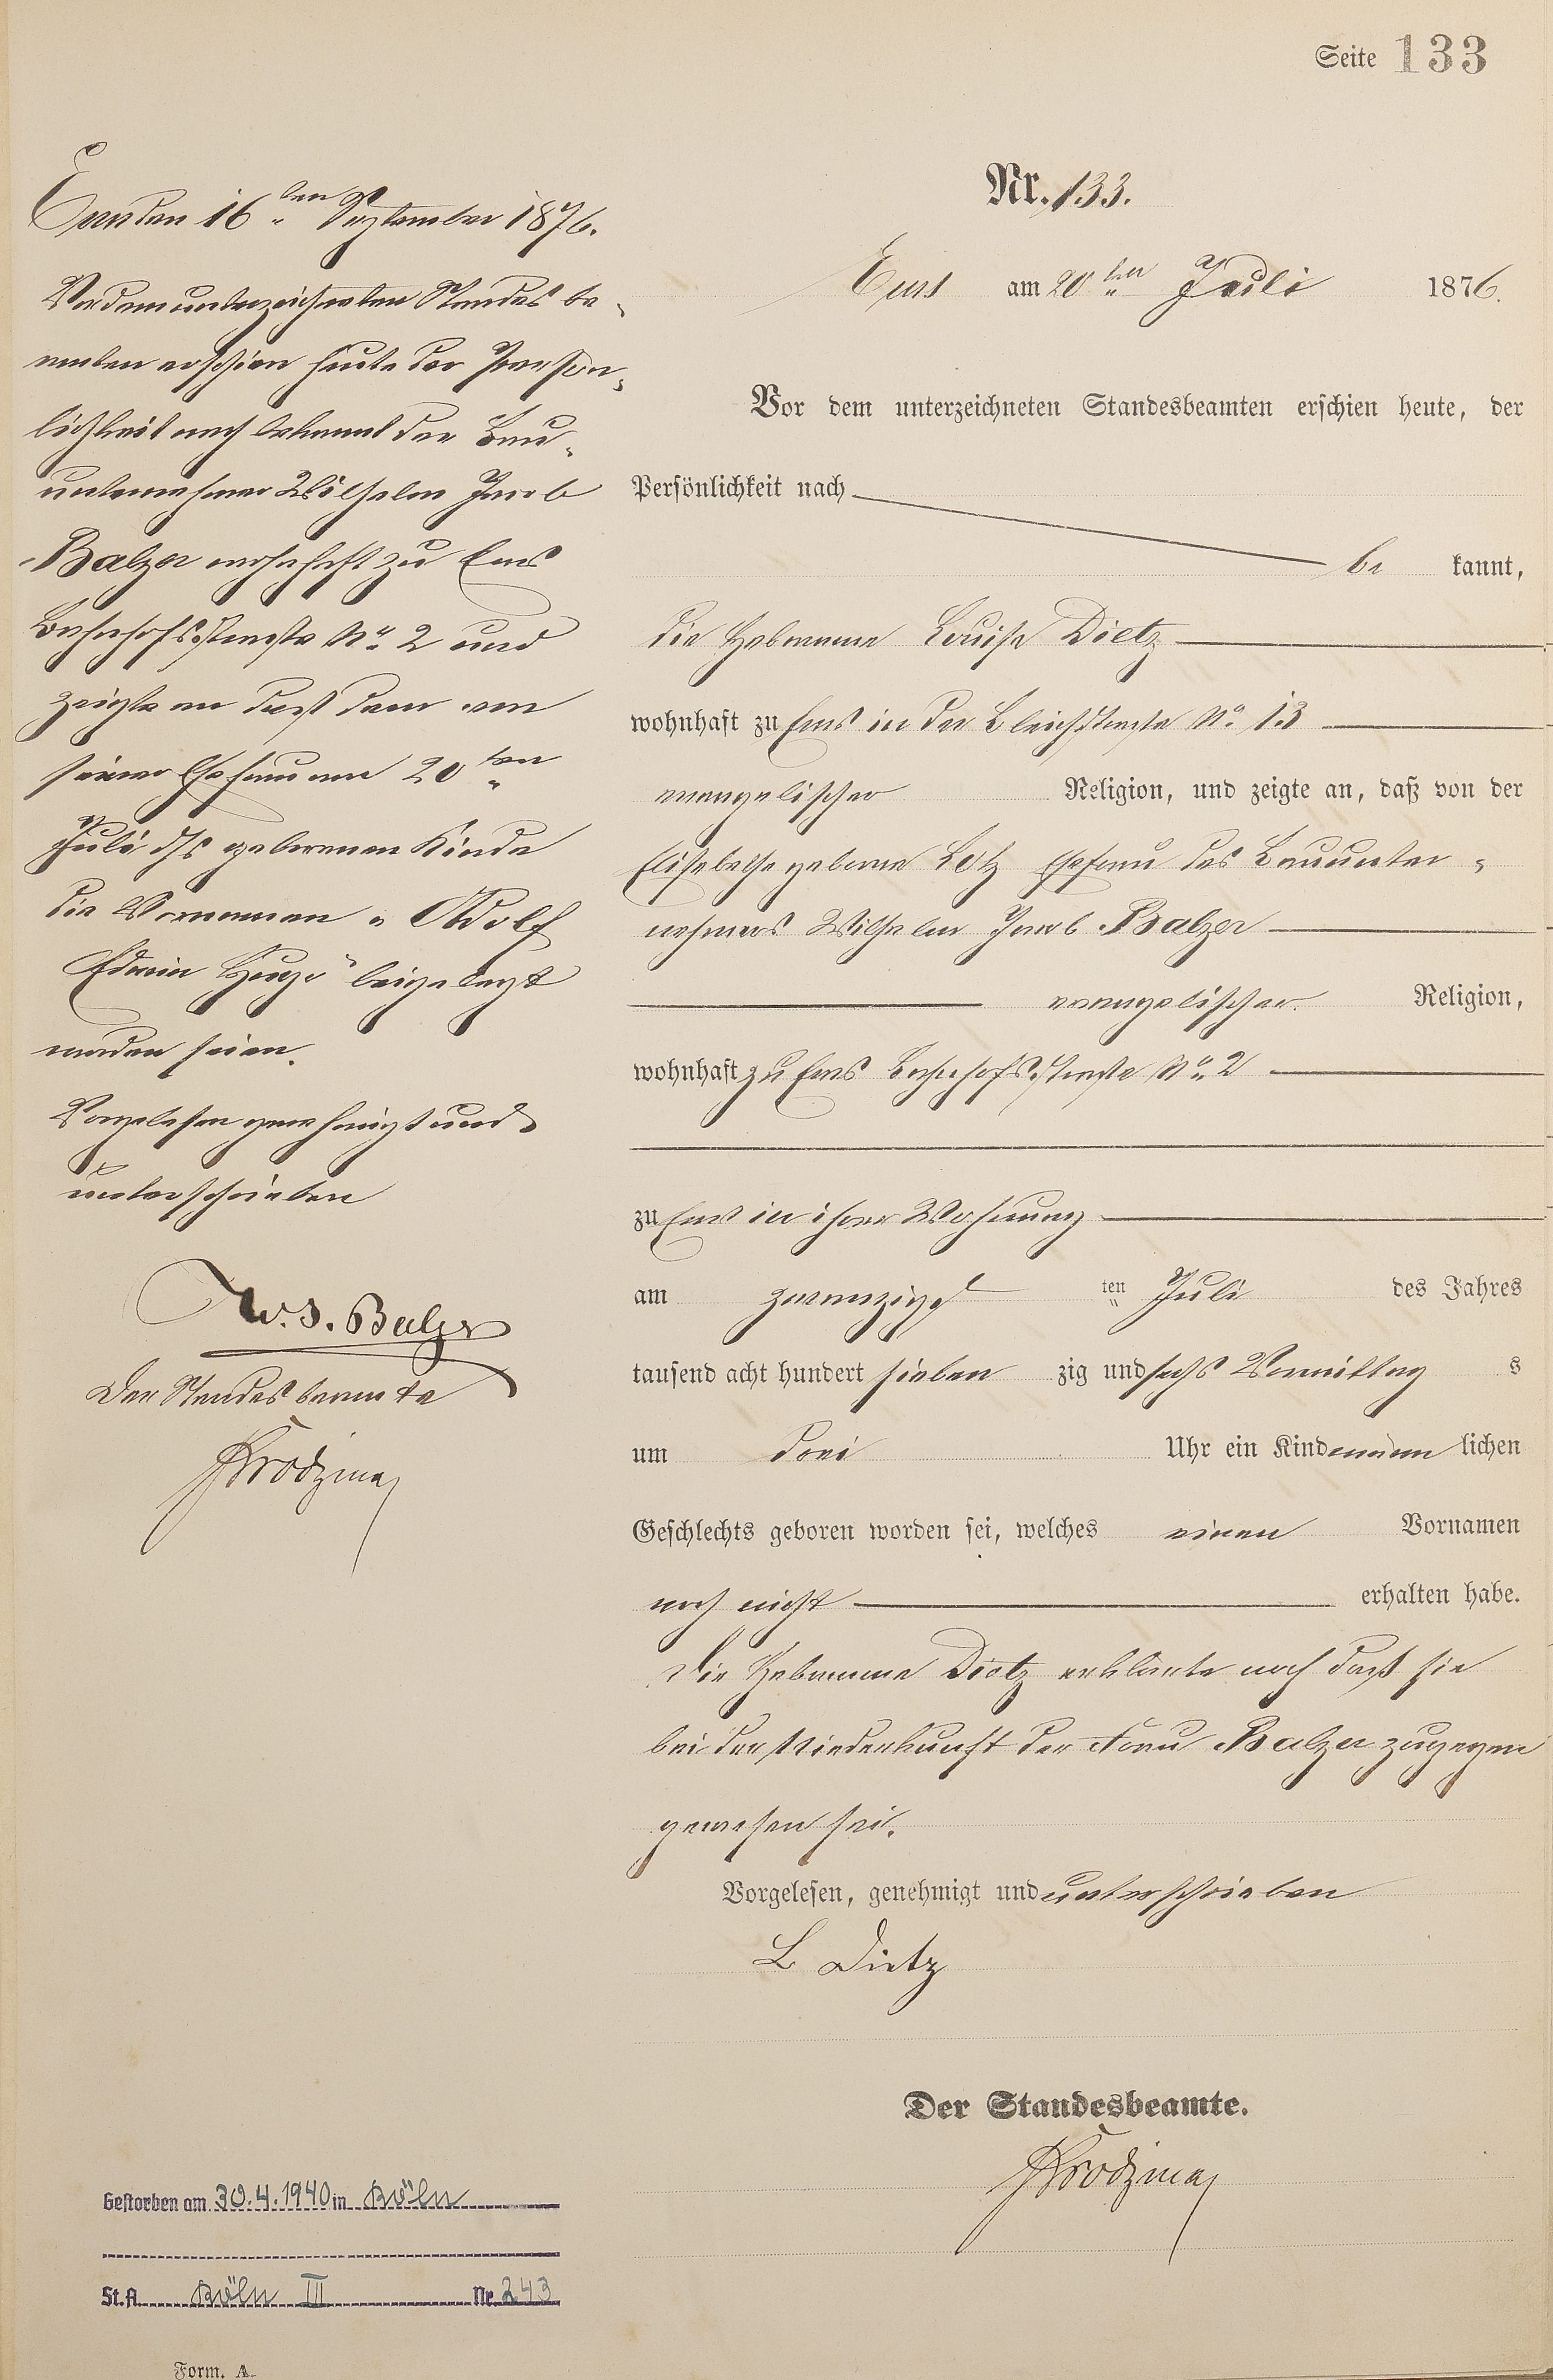 Seite 133
Ems den 16ten September 1876.
Vor dem unterzeichneten Standes be-
amten erschien heute der Persön-
lichkeit nach bekannt der Bau-
unternehmer Wilhelm Jacob
Balzer wohnhaft zu Ems
Bahnhofsstraße No 2 und
zeigte an daß dem von
seiner Ehefrau am 20ten
Juli d/s geborenen Kinde
die Vornamen „Adolf
Edwin Hugo" beigelegt
worden seien.
Vorgelesen genehmigt und
unterschrieben
W. J. Balzer
Der Standesbeamte
Gestorben am 30.4.1940 in Köln
St.A. Köln III Nr. 243
Form. A.
Nr. 133.
Ems am 20ten Juli 1876.
Vor dem unterzeichneten Standesbeamten erschien heute, der
Persönlichkeit nach
be kannt,
die Hebamme Louise Dietz
wohnhaft zu Ems in der Bleichstraße No. 13
evangelischer Religion, und zeigte an, daß von der
Elisabethe geborne Lotz Ehefrau des Bauunter-
nehmers Wilhelm Jacob Balzer
evangelischer Religion,
wohnhaft zu Ems Bahnhofsstraße No. 2
zu Ems in ihrer Wohnung
am zwanzigst ten Juli des Jahres
tausend acht hundert sieben zig und sechs Vormittag s
um drei Uhr ein Kind männ lichen
Geschlechts geboren worden sei, welches einen Vornamen
noch nicht erhalten habe.
Die Hebamme Dietz erklärte noch daß sie
bei der Niederkunft der Frau Balzer zugegen
gewesen sei.
Vorgelesen, genehmigt und unterschrieben
L Dietz
Der Standesbeamte.